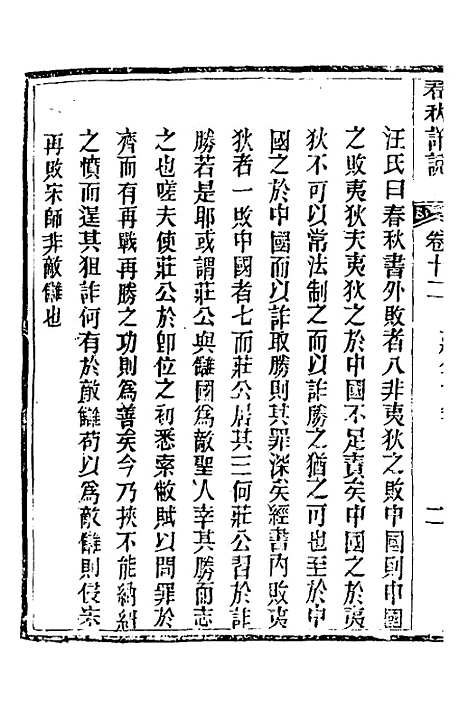 春秋詳説
卷十二
二
汪氏曰春秋書外敗者八非夷狄之敗中國則中國
之敗夷狄夫夷狄之於中國不足責矣中國之於夷
狄不可以常法制之而以詐勝之猶之可也至於中
國之於中國而以詐取勝則其罪深矣經書内敗夷
狄者一敗中國者七而莊公居其三何莊公習於詐
勝若是耶或謂莊公與讎國爲敵聖人幸其勝而志
之也嗟夫使莊公於卽位之初悉索敝賦以問罪於
齊而有再戰再勝之功則爲善矣今乃挾不能納糾
之憤而逞其狙詐何有於敵讎苟以爲敵讎則侵宋
再敗宋師非敵讎也